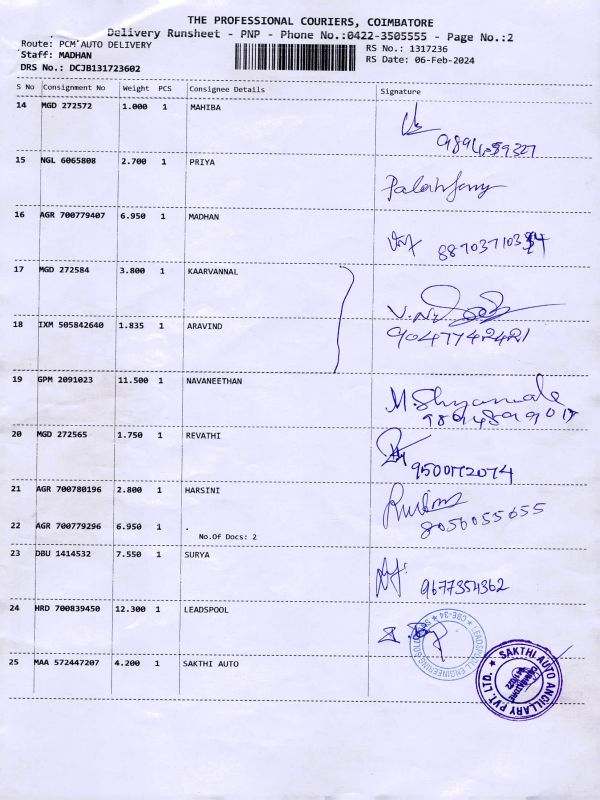 THE PROFESSIONAL COURIERS, COIMBATORE
Delivery Runsheet - PNP - Phone No.:0422-3505555 - Page No.:2
Route: PCM AUTO DELIVERY
RS No.: 1317236
Staff: MADHAN
RS Date: 06-Feb-2024
DRS No.: DCJB131723602
S No Consignment No Weight PCS Consignee Details Signature
14 MGD 272572 1.000 1 MAHIBA
15 NGL 6065808 2.700 1 PRIYA
16 AGR 700779407 6.950 1 MADHAN
17 MGD 272584 3.800 1 KAARVANNAL
18 IXM 505842640 1.835 1 ARAVIND
9047742421
19 GPM 2091023 11.500 1 NAVANEETHAN
M.Shyamala
20 MGD 272565 1.750 1 REVATHI
21 AGR 700780196 2.800 1 HARSINI
8056055655
22 AGR 700779296 6.950 1 .
No.Of Docs: 2
23 DBU 1414532 7.550 1 SURYA
9677354362
24 HRD 700839450 12.300 1 LEADSPOOL
25 MAA 572447207 4.200 1 SAKTHI AUTO
SAKTHI AUTO ANCILLARY PVT. LTD.
COIMBATORE